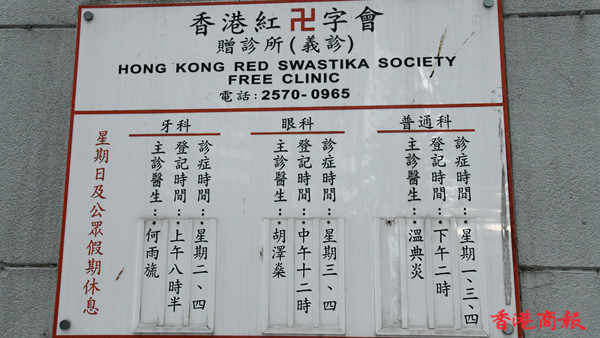 香港紅卍字會
贈診所(義診)
HONG KONG RED SWASTIKA SOCIETY
FREE CLINIC
電話:2570-0965
普通科
診症時間：星期一、三、四
登記時間：下午二時
主診醫生：溫典炎
眼科
診症時間：星期三、四
登記時間：中午十二時
主診醫生：胡澤燊
牙科
診症時間：星期二、四
登記時間：上午八時半
主診醫生：何雨旒
星期日及公眾假期休息
香港商報